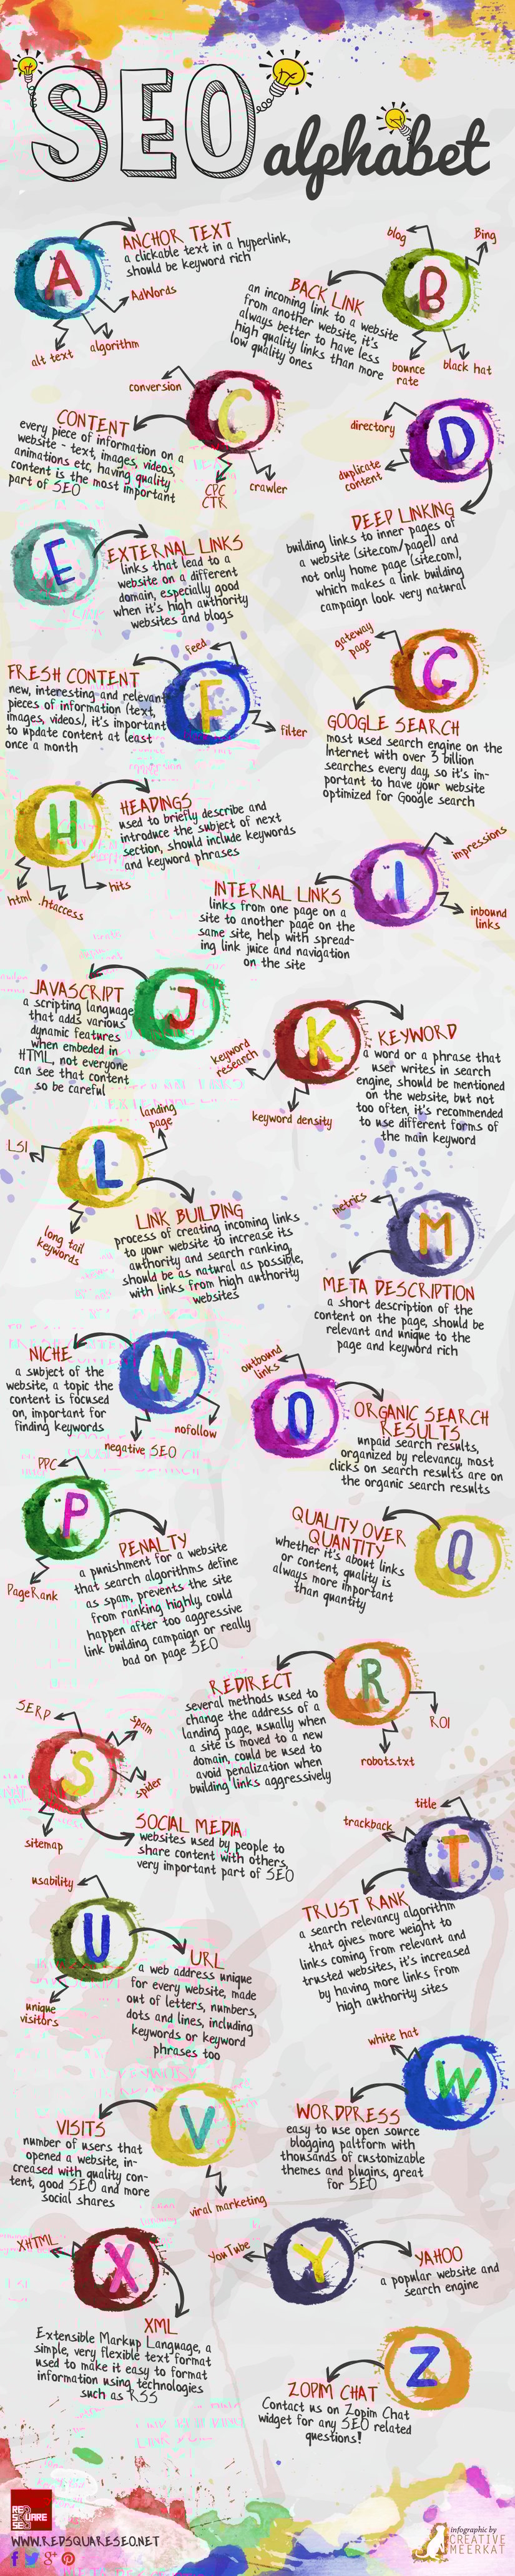 SEO
alphabet
A
ANCHOR TEXT
a clickable text in a hyperlink,
should be keyword rich
AdWords
algorithm
alt text
B
blog
Bing
BACK LINK
an incoming link to a website
from another website, it's
always better to have less
high quality links than more
low quality ones
bounce
rate
black hat
C
conversion
CONTENT
every piece of information on a
website - text, images, videos,
animations etc, having quality
content is the most important
part of SEO
CPC
CTR
crawler
D
directory
duplicate
content
DEEP LINKING
building links to inner pages of
a website (site.com/page1) and
not only home page (site.com),
which makes a link building
campaign look very natural
E
EXTERNAL LINKS
links that lead to a
website on a different
domain, especially good
when it's high authority
websites and blogs
F
feed
FRESH CONTENT
new, interesting and relevant
pieces of information (text,
images, videos), it's important
to update content at least
once a month
filter
G
gateway
page
GOOGLE SEARCH
most used search engine on the
Internet with over 3 billion
searches every day, so it's im-
portant to have your website
optimized for Google search
H
HEADINGS
used to briefly describe and
introduce the subject of next
section, should include keywords
and keyword phrases
html
.htaccess
hits
I
impressions
INTERNAL LINKS
links from one page on a
site to another page on the
same site, help with spread-
ing link juice and navigation
on the site
inbound
links
J
JAVASCRIPT
a scripting language
that adds various
dynamic features
when embeded in
HTML, not everyone
can see that content
so be careful
K
KEYWORD
a word or a phrase that
user writes in search
engine, should be mentioned
on the website, but not
too often, it's recommended
to use different forms of
the main keyword
keyword
research
keyword density
L
landing
page
LSI
long tail
keywords
LINK BUILDING
process of creating incoming links
to your website to increase its
authority and search ranking,
should be as natural as possible,
with links from high authority
websites
M
metrics
META DESCRIPTION
a short description of the
content on the page, should be
relevant and unique to the
page and keyword rich
N
NICHE
a subject of the
website, a topic the
content is focused
on, important for
finding keywords
negative SEO
nofollow
O
outbound
links
ORGANIC SEARCH
RESULTS
unpaid search results,
organized by relevancy, most
clicks on search results are on
the organic search results
P
PPC
PageRank
PENALTY
a punishment for a website
that search algorithms define
as spam, prevents the site
from ranking highly, could
happen after too aggressive
link building campaign or really
bad on page SEO
Q
QUALITY OVER
QUANTITY
whether it's about links
or content, quality is
always more important
than quantity
R
REDIRECT
several methods used to
change the address of a
landing page, usually when
a site is moved to a new
domain, could be used to
avoid penalization when
building links aggressively
ROI
robots.txt
S
SERP
spam
spider
sitemap
SOCIAL MEDIA
websites used by people to
share content with others,
very important part of SEO
T
title
trackback
TRUST RANK
a search relevancy algorithm
that gives more weight to
links coming from relevant and
trusted websites, it's increased
by having more links from
high authority sites
U
usability
unique
visitors
URL
a web address unique
for every website, made
out of letters, numbers,
dots and lines, including
keywords or keyword
phrases too
V
VISITS
number of users that
opened a website, in-
creased with quality con-
tent, good SEO and more
social shares
viral marketing
W
white hat
WORDPRESS
easy to use open source
blogging paltform with
thousands of customizable
themes and plugins, great
for SEO
X
XHTML
XML
Extensible Markup Language, a
simple, very flexible text format
used to make it easy to format
information using technologies
such as RSS
Y
YouTube
YAHOO
a popular website and
search engine
Z
ZOPIM CHAT
Contact us on Zopim Chat
widget for any SEO related
questions!
RED
SQUARE
SEO
WWW.REDSQUARESEO.NET
infographic by
CREATIVE
MEERKAT